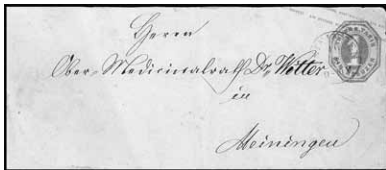 Herrn
Ober-Medicinalrath Dr. Wolter
in
Meiningen